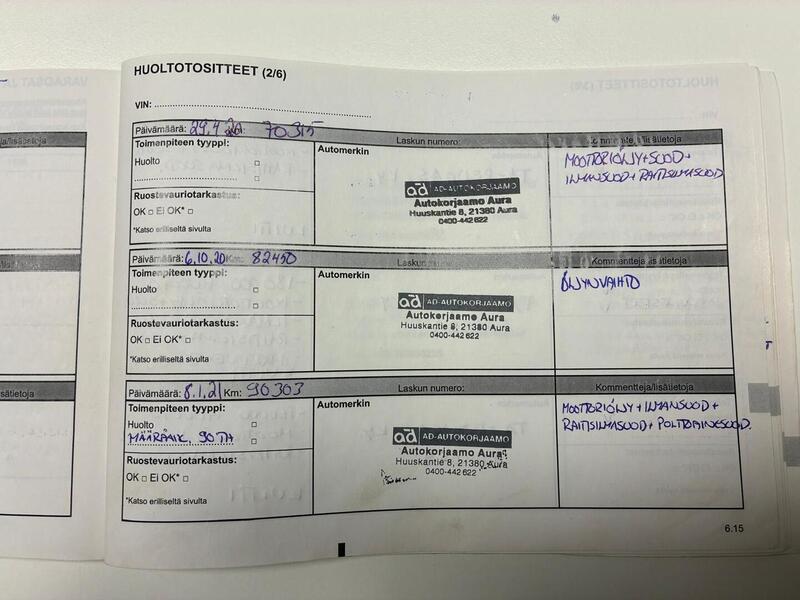 HUOLTOTOSITTEET (2/6)
VIN:
Päivämäärä: 29.4.20 70315 Laskun numero: Kommentteja/lisätietoja
Toimenpiteen tyyppi: Automerkin
MOOTTORIÖLJY+SUOD+
Huolto
ILMANSUOD+RAITISILMASUOD
ad AD-AUTOKORJAAMO
Autokorjaamo Aura
Huuskantie 8, 21380 Aura
0400-442 622
Ruostevauriotarkastus:
OK □ Ei OK* □
*Katso erilliseltä sivulta
Päivämäärä: 6.10.20 Km: 82450 Laskun Kommentteja/lisätietoja
Toimenpiteen tyyppi: Automerkin
ÖLJYNVAIHTO
Huolto
ad AD-AUTOKORJAAMO
Autokorjaamo Aura
Huuskantie 8, 21380 Aura
0400-442 622
Ruostevauriotarkastus:
OK □ Ei OK* □
*Katso erilliseltä sivulta
Päivämäärä: 8.1.21 Km: 90303 Laskun numero: Kommentteja/lisätietoja
Toimenpiteen tyyppi: Automerkin
MOOTTORIÖLJY+ILMANSUOD+
Huolto
RAITISILMASUOD+POLTTOAINESUOD.
MÄÄRÄAIK. 90 TH
ad AD-AUTOKORJAAMO
Autokorjaamo Aura
Huuskantie 8, 21380 Aura
0400-442 622
Ruostevauriotarkastus:
OK □ Ei OK* □
*Katso erilliseltä sivulta
6.15